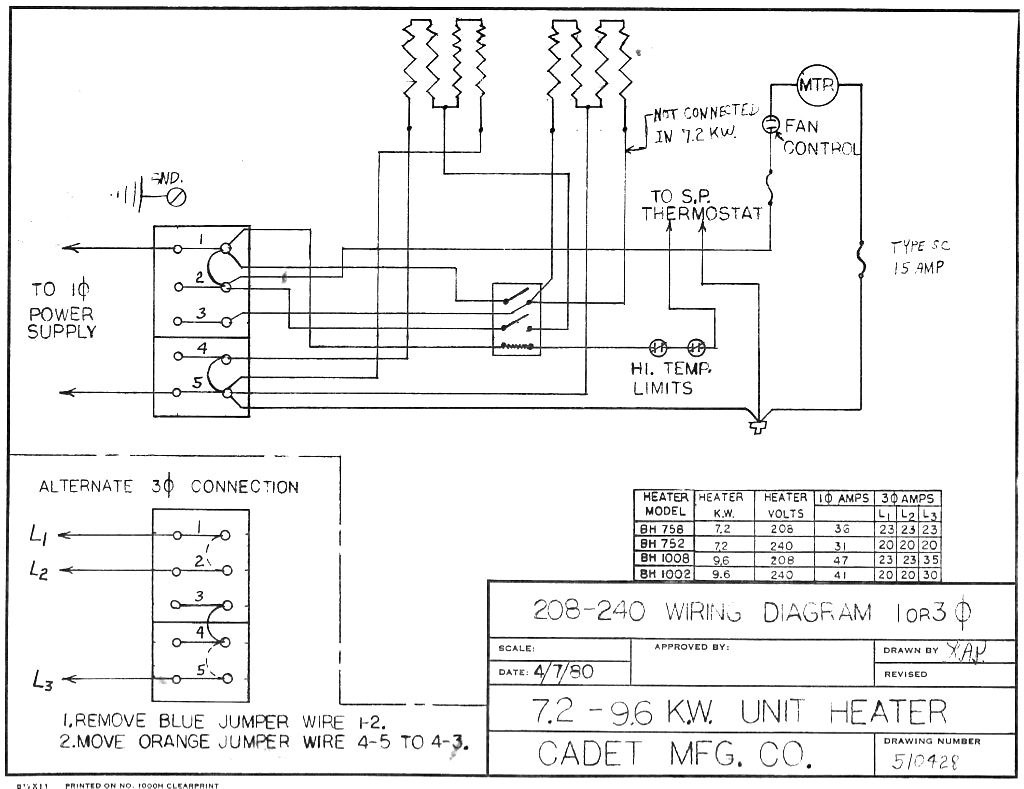 MTR
NOT CONNECTED
IN 7.2 KW.
FAN
CONTROL
GND.
TO S.P.
THERMOSTAT
TYPE SC
15 AMP
1
2
3
4
5
TO 1ϕ
POWER
SUPPLY
HI. TEMP.
LIMITS
ALTERNATE 3ϕ CONNECTION
L1
L2
L3
1
2
3
4
5
1. REMOVE BLUE JUMPER WIRE 1-2.
2. MOVE ORANGE JUMPER WIRE 4-5 TO 4-3.
HEATER MODEL HEATER K.W. HEATER VOLTS 1ϕ AMPS 3ϕ AMPS
L1 L2 L3
BH 758 7.2 208 36 23 23 23
BH 752 7.2 240 31 20 20 20
BH 1008 9.6 208 47 23 23 35
BH 1002 9.6 240 41 20 20 30
208-240 WIRING DIAGRAM 1 OR 3 ϕ
SCALE:
APPROVED BY:
DRAWN BY
DATE: 4/7/80
REVISED
7.2 - 9.6 K.W. UNIT HEATER
CADET MFG. CO.
DRAWING NUMBER
510428
8½X11 PRINTED ON NO. 1000H CLEARPRINT